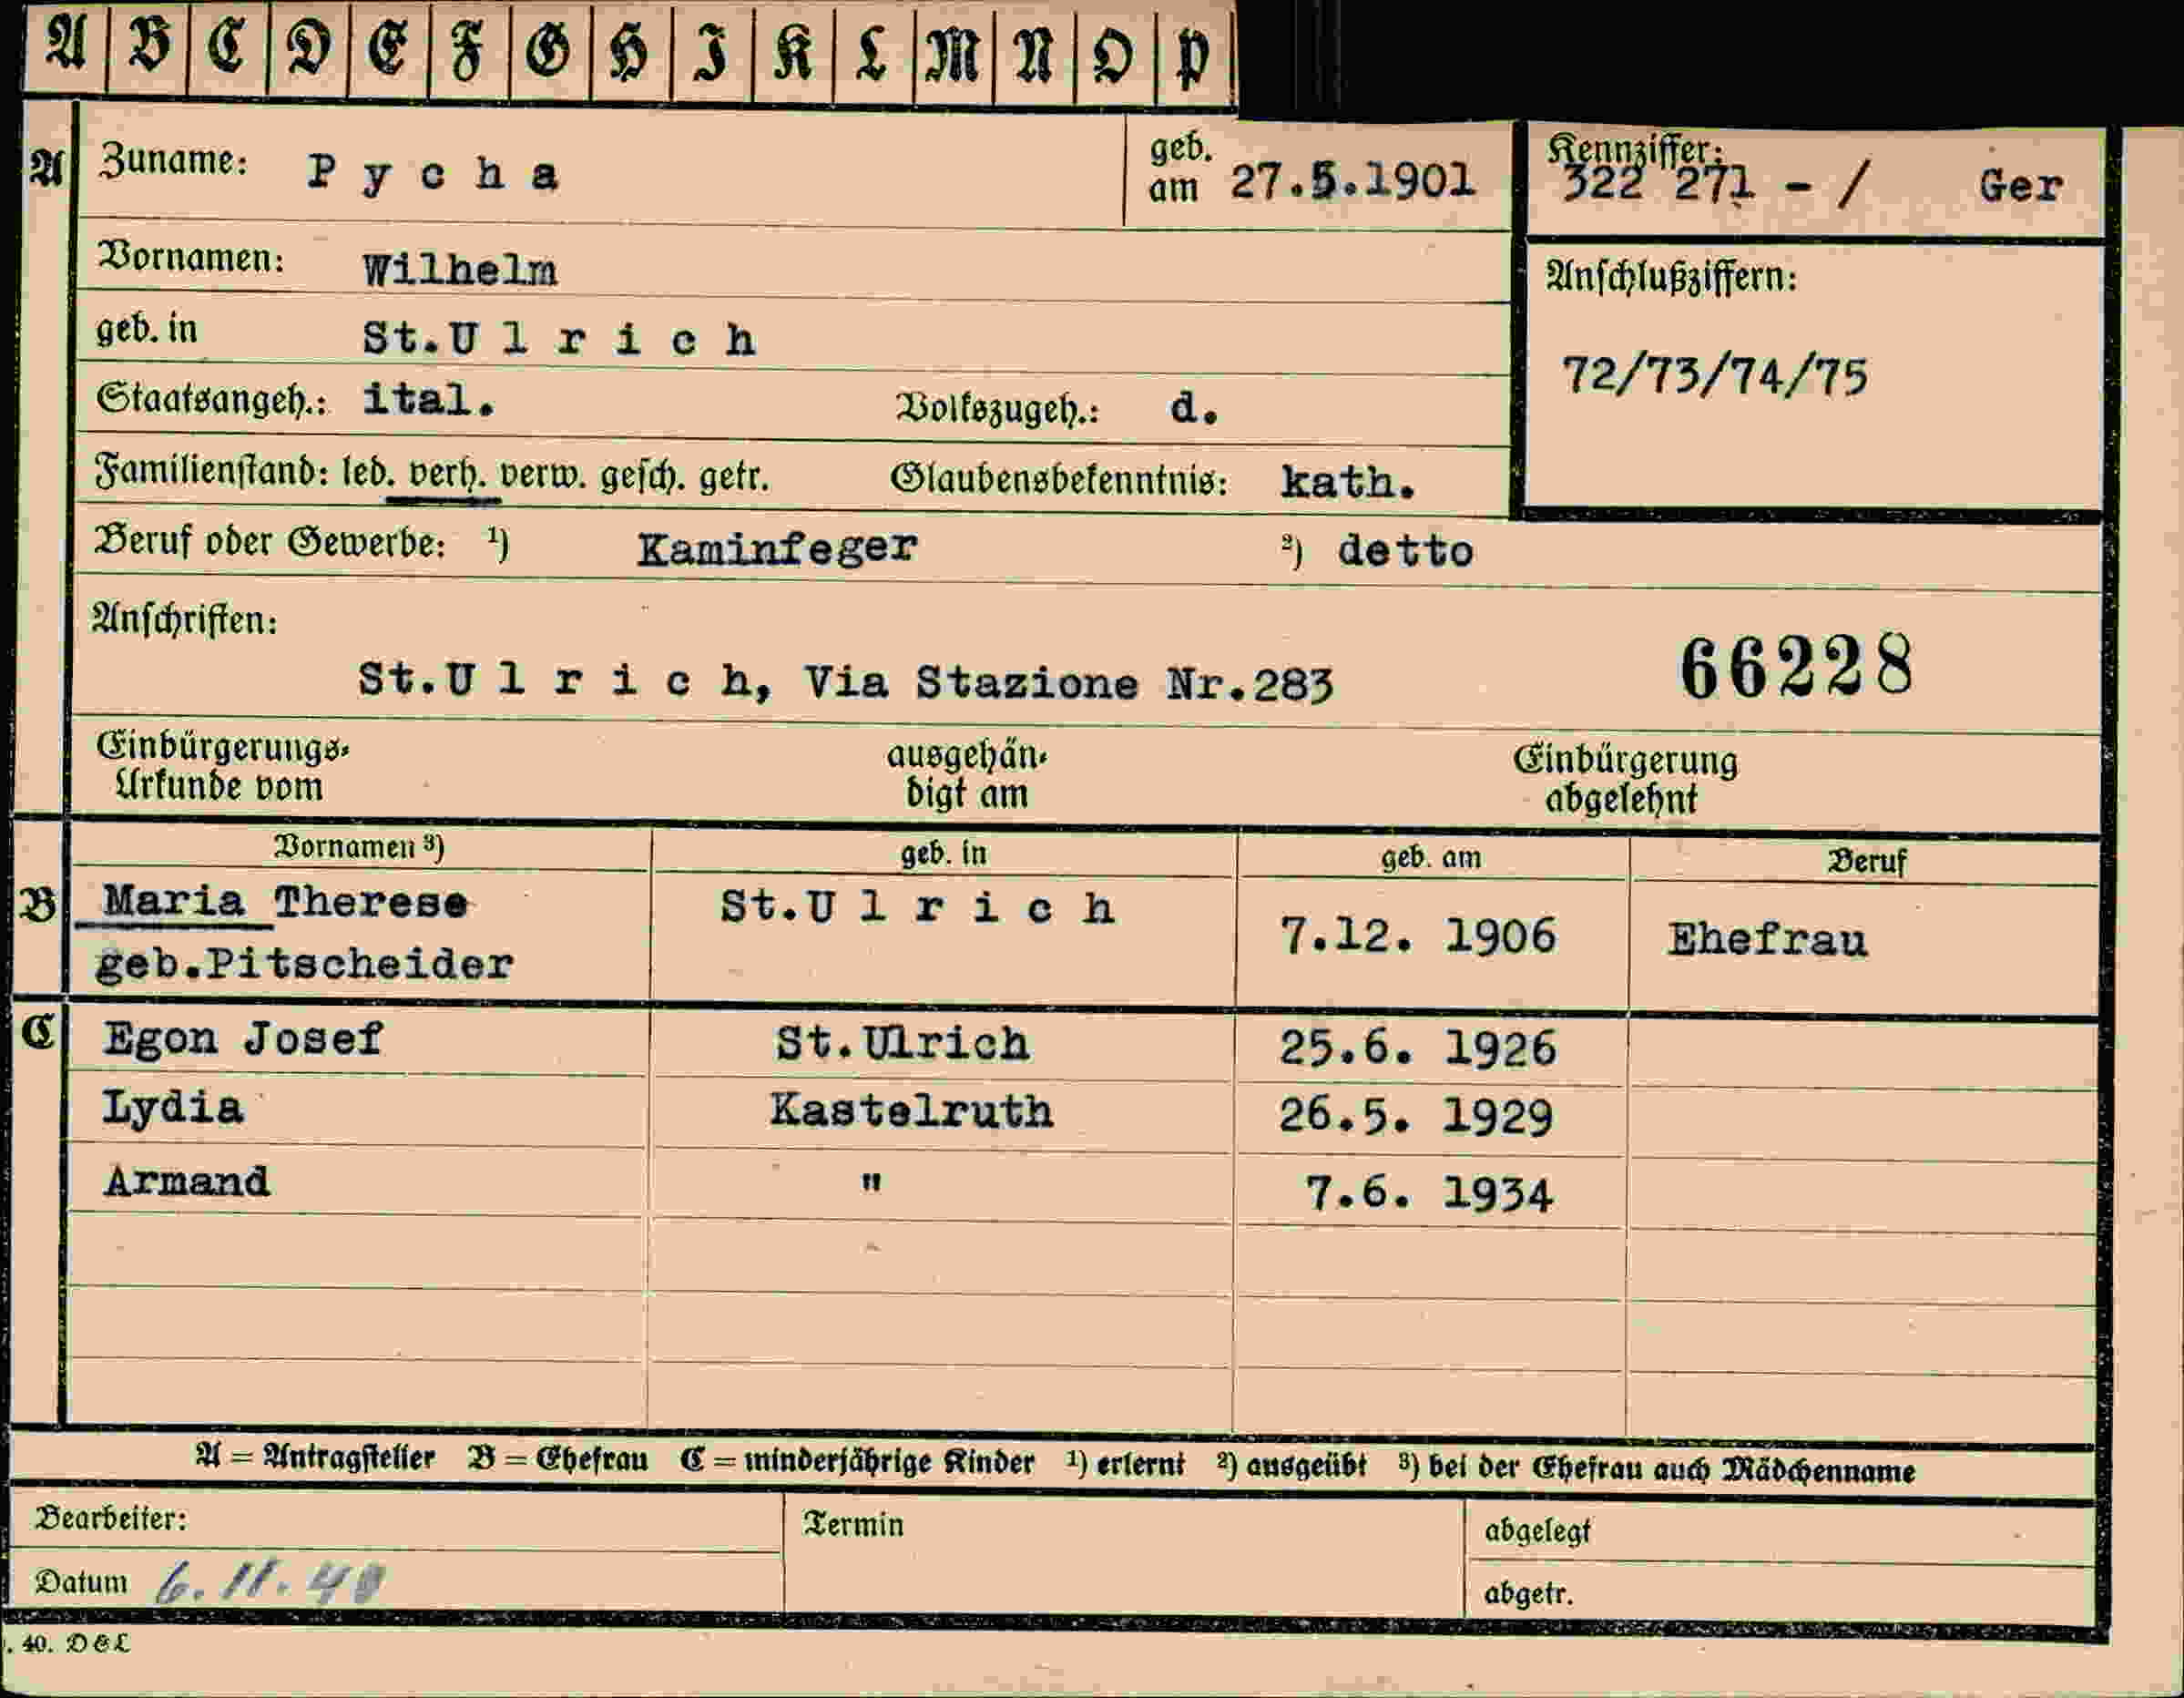 A B C D E F G H I K L M N O P
A
Zuname: Pycha
geb. am 27.5.1901
Kennziffer: 322 271 - / Ger
Vornamen: Wilhelm
Anschlußziffern:
geb. in St.Ulrich
72/73/74/75
Staatsangeh.: ital. Volkszugeh.: d.
Familienstand: led. verh. verw. gesch. getr. Glaubensbekenntnis: kath.
Beruf oder Gewerbe: ¹) Kaminfeger ²) detto
Anschriften:
St.Ulrich, Via Stazione Nr.283
66228
Einbürgerungs-
Urkunde vom
ausgehän-
digt am
Einbürgerung
abgelehnt
Vornamen ³) geb. in geb. am Beruf
B
Maria Therese St.Ulrich 7.12. 1906 Ehefrau
geb.Pitscheider
C
Egon Josef St.Ulrich 25.6. 1926
Lydia Kastelruth 26.5. 1929
Armand " 7.6. 1934
A = Antragsteller B = Ehefrau C = minderjährige Kinder ¹) erlernt ²) ausgeübt ³) bei der Ehefrau auch Mädchenname
Bearbeiter: Termin abgelegt
Datum 6.11.40 abgetr.
. 40. D&L